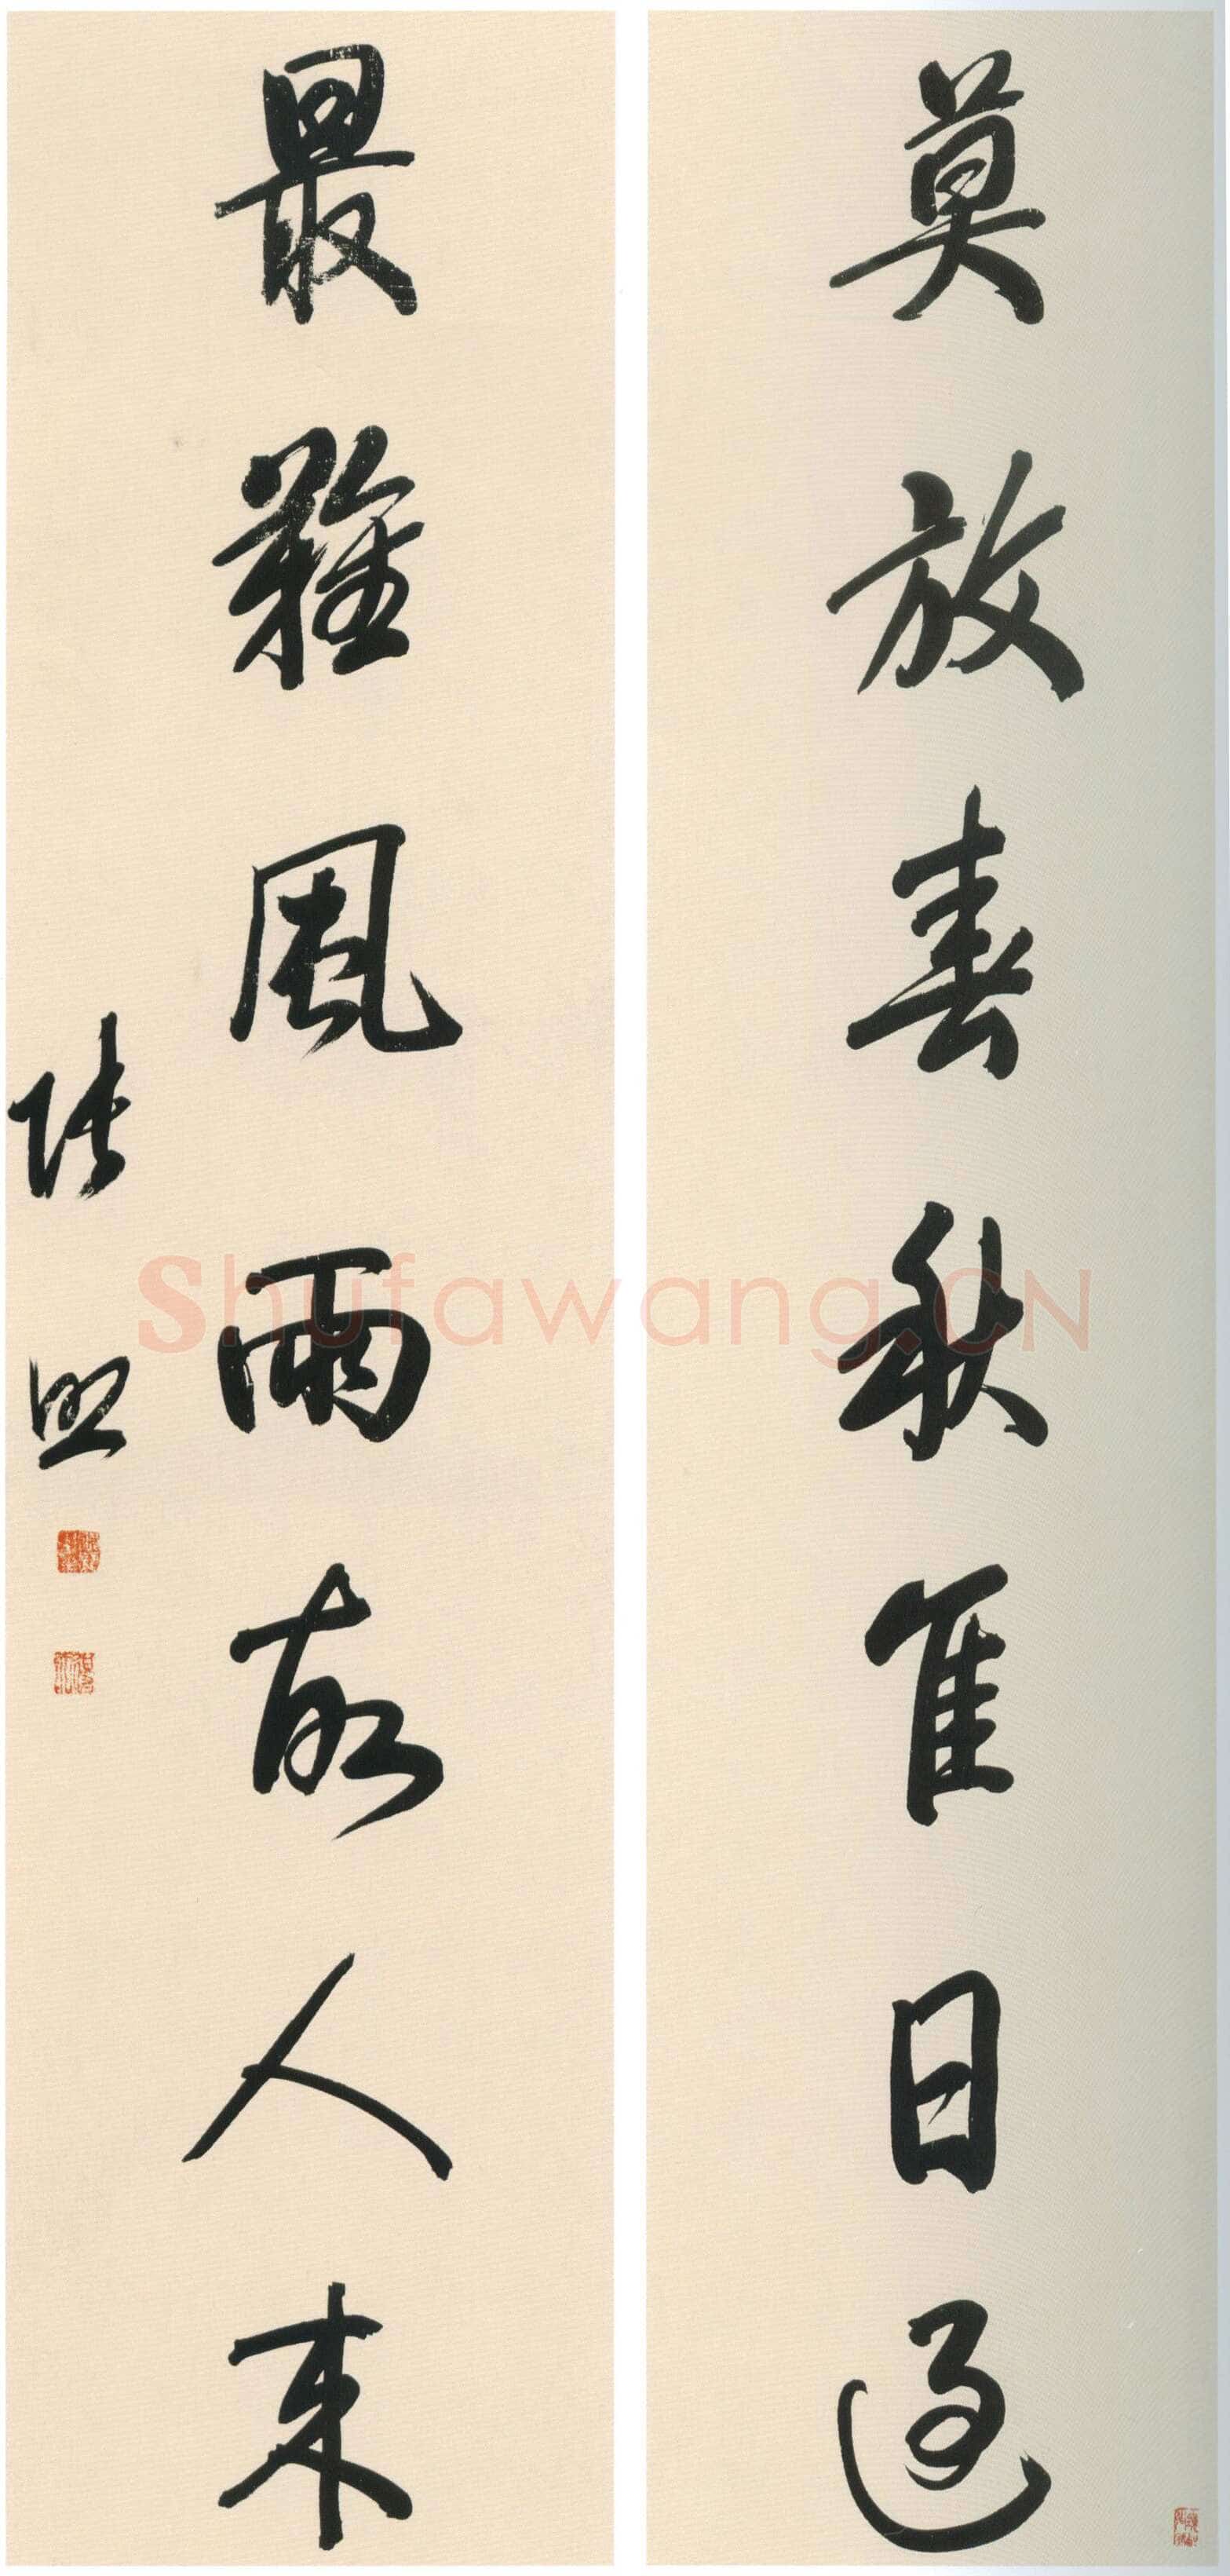 莫放春秋隹日過
最難風雨故人來
張照
Shufawang.CN